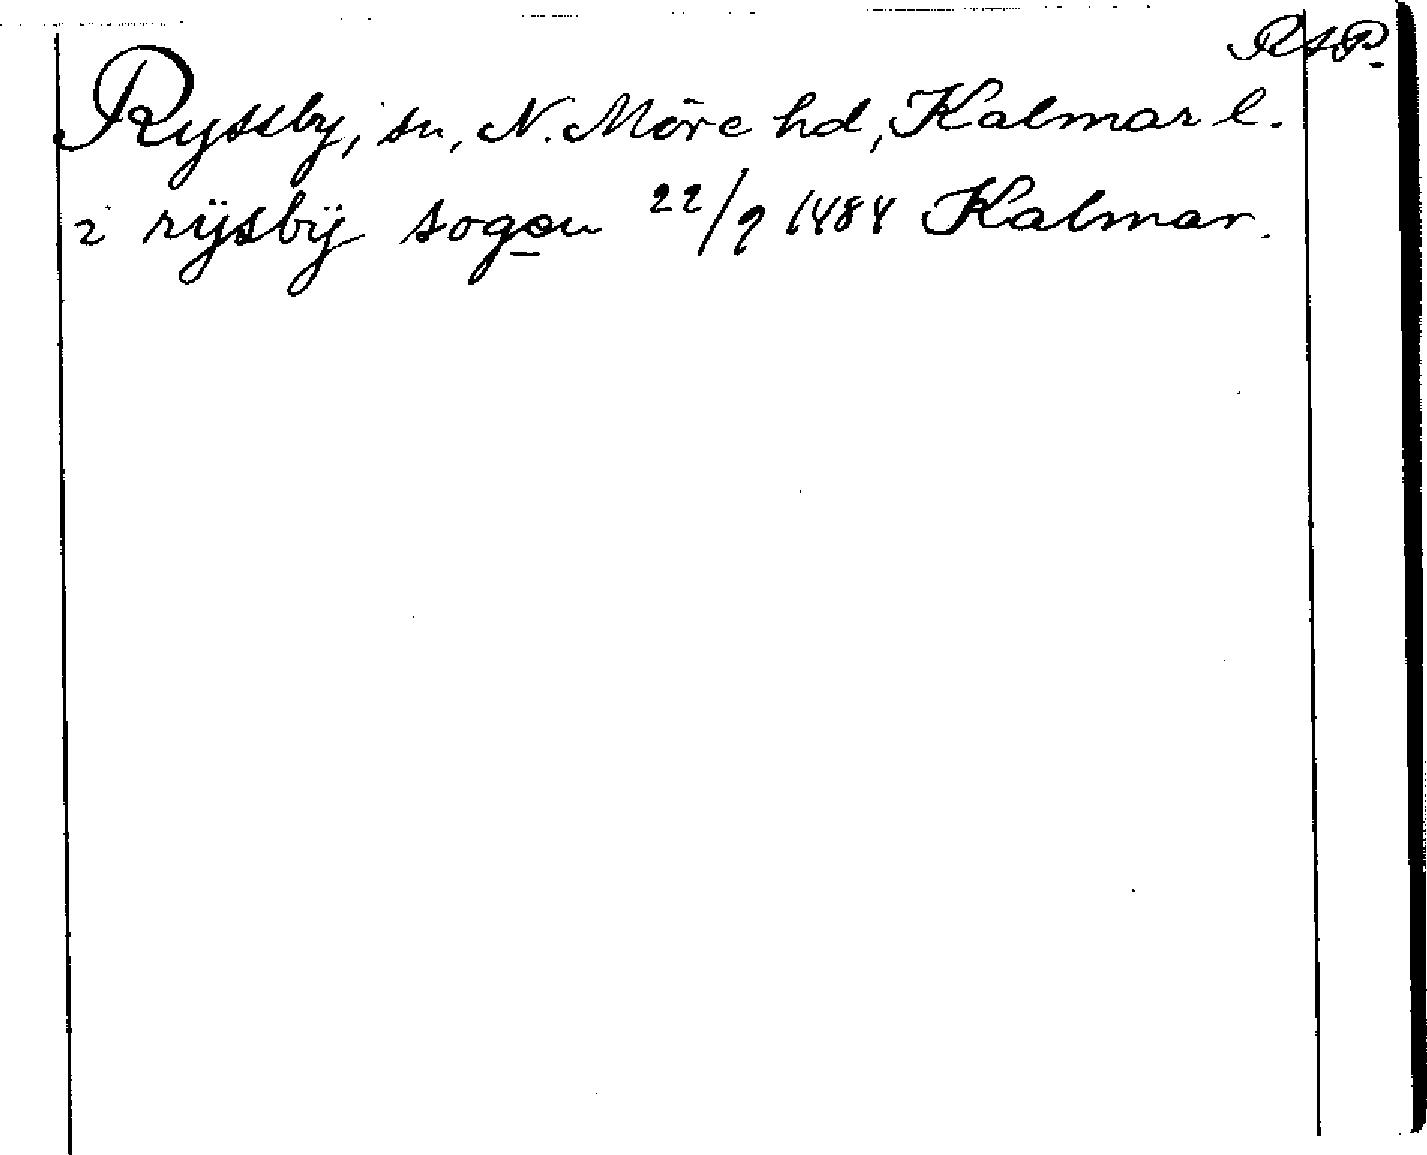 RAP.
Ryssby, sn, N. Möre hd, Kalmar l.
i rÿsbÿ sogen 22/9 1484 Kalmar.